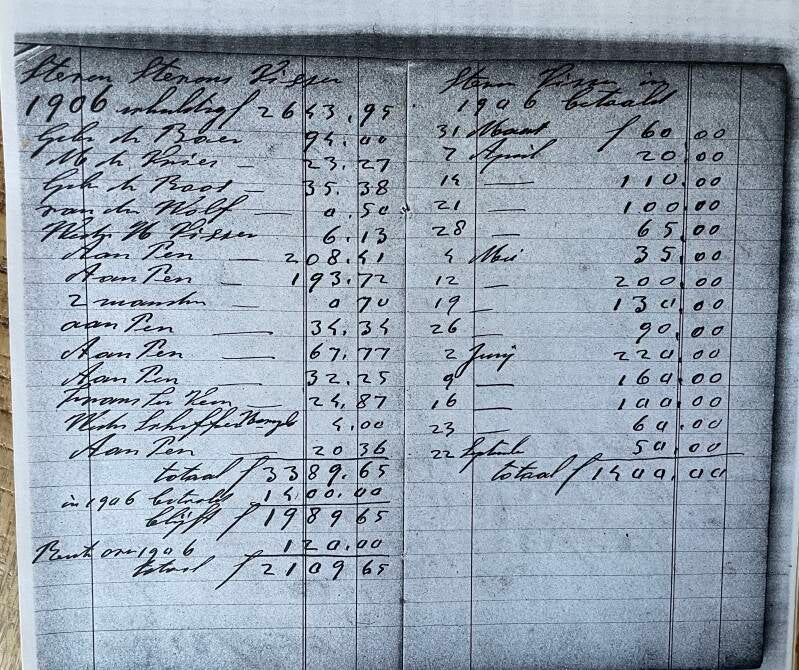 Steven Stevens Visser
1906 schuldig f 2643.95
Gebr de Boer 94.00
M de Vries — 23.27
Gebr de Boer — 35.38
van der Wolf — 0.50
Wed. H Visser 6.13
Aan Pen — 208.41
Aan Pen 193.72
2 — 0 70
aan Pen — 34.34
Aan Pen — 67.77
Aan Pen — 32.25
24.87
Wed. 4.00
Aan Pen — 20 36
totaal f 3389.65
in 1906 betaald 1400.00
blijft f 1989 65
Rente over 1906 120.00
totaal f 2109 65
Steven Visser in
1906 betaald
31 Maart f 60.00
7 April 20.00
14 — 110.00
21 — 100.00
28 — 65.00
4 Mei 35.00
12 — 200.00
19 — 130.00
26 — 90.00
2 Junij 220.00
9 — 160.00
16 — 100.00
23 — 60.00
22 Septemb 50.00
totaal f 1400.00